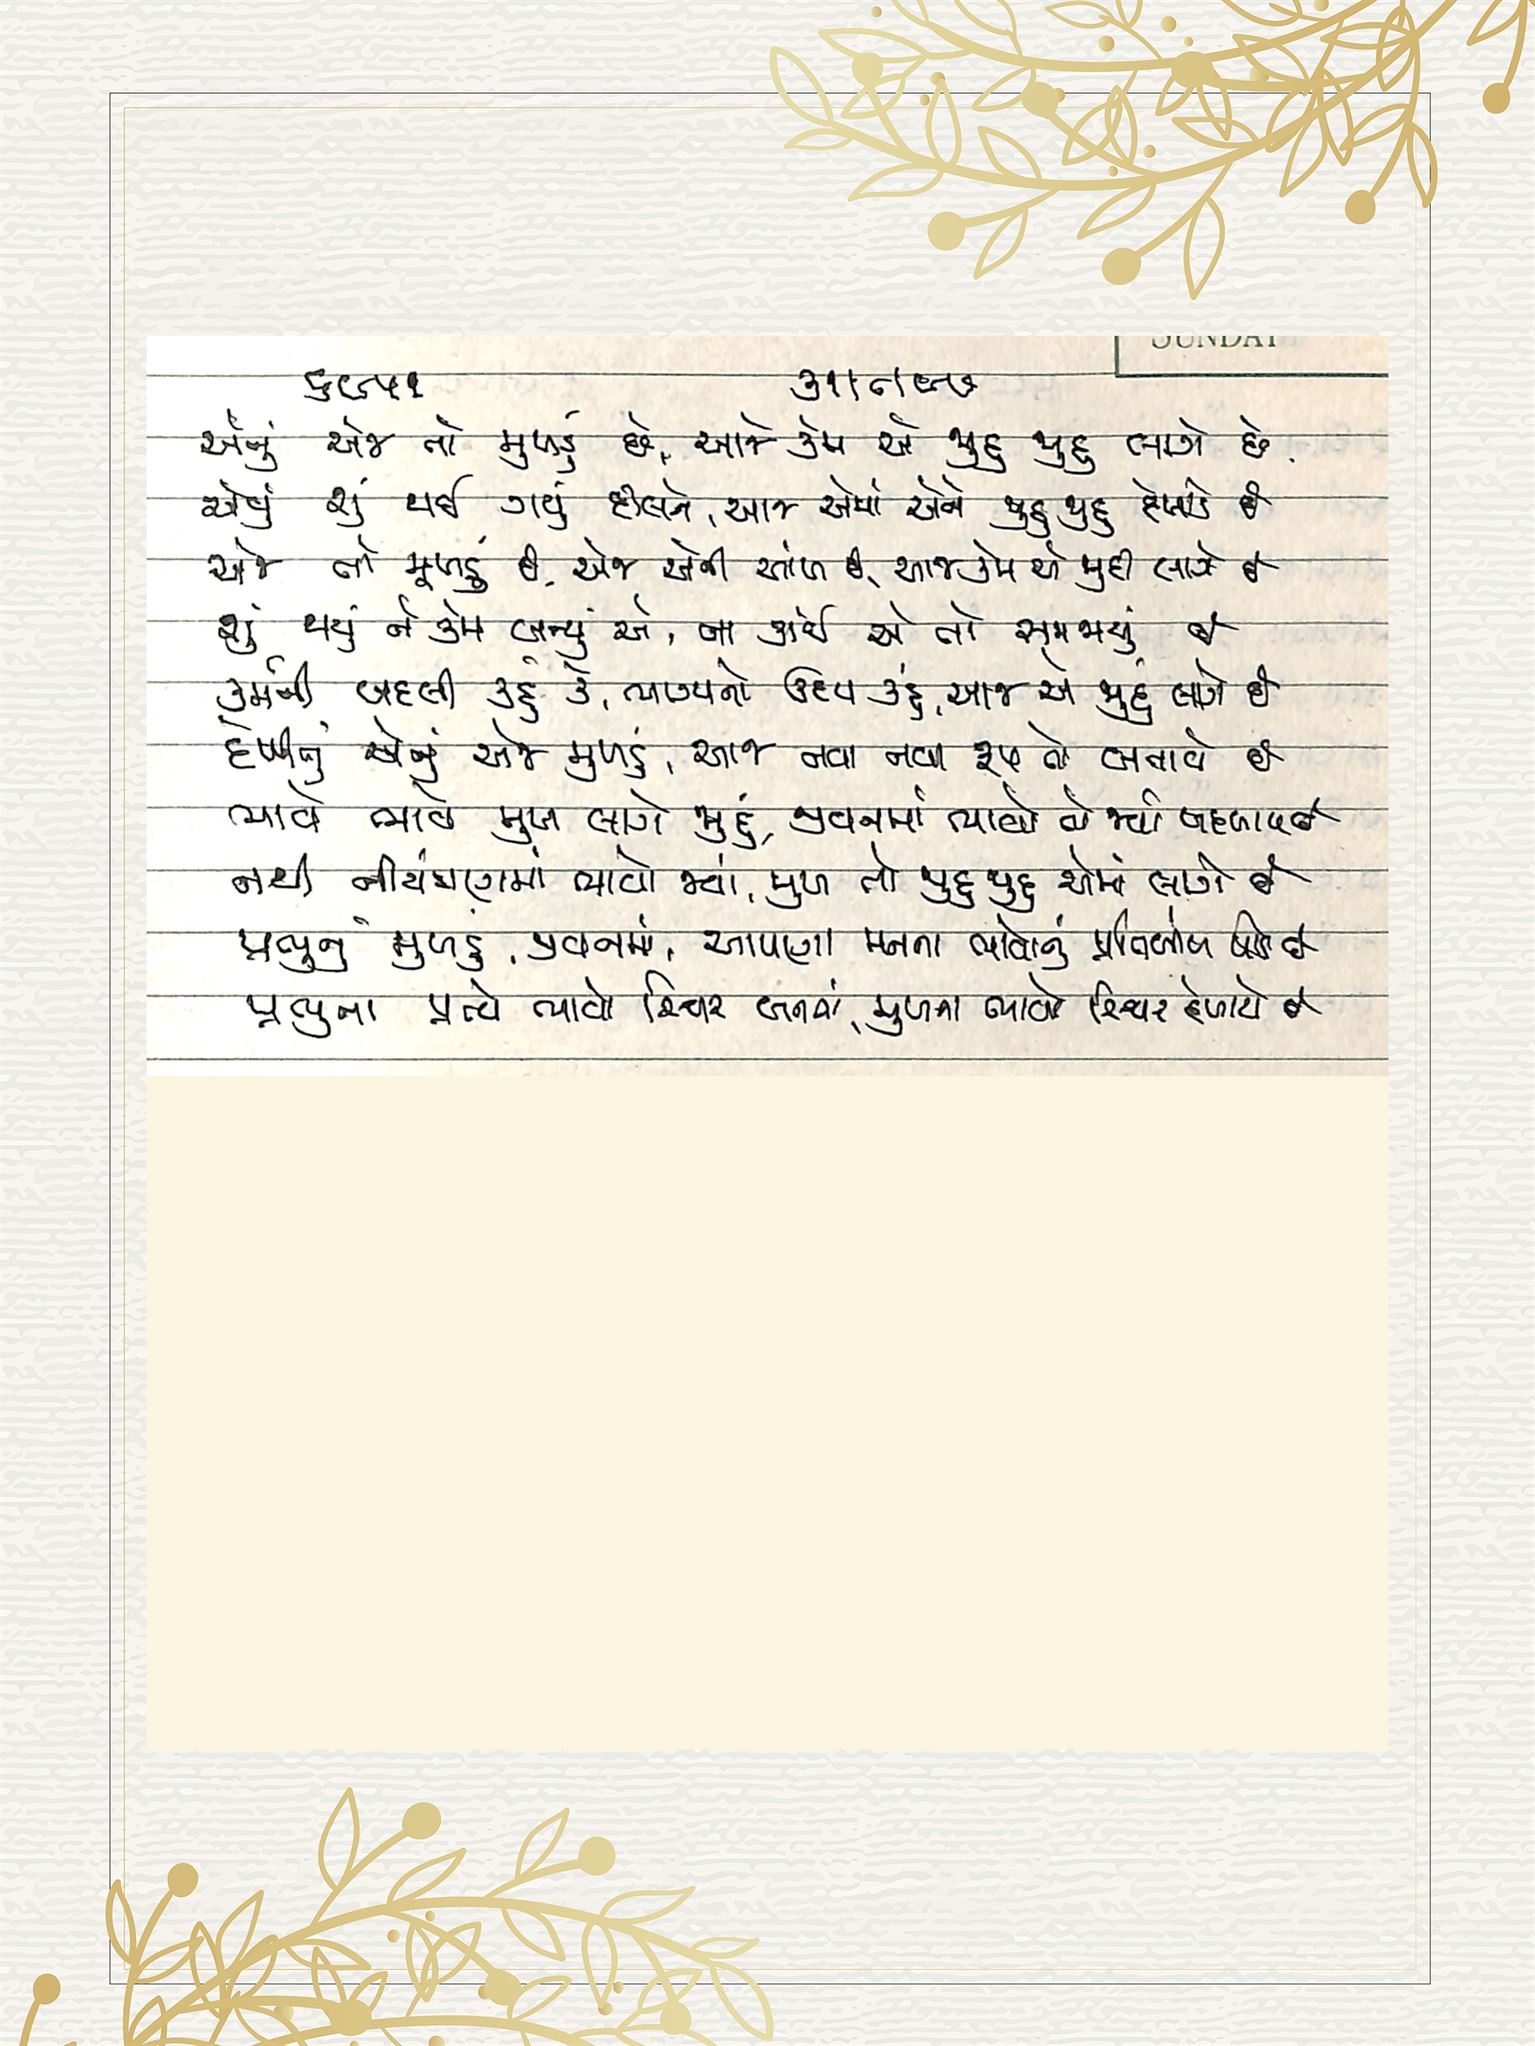 SUNDAY
એનું એજ તો મુખડું છે, આજે કેમ એ જુદુ જુદુ લાગે છે.
એવું શું થઈ ગયું દીલને, આજ એમાં એને જુદુ જુદુ દેખાડે છે
એજ તો મૂખડું છે, એજ એની આંખ છે, આજ કેમ એ જુદી લાગે છે
શું થયું ને કેમ બન્યું એ, ના કાંઈ એ તો સમજાયું છે
કર્મની બદલી કહું કે, ભાગ્યનો ઉદય કહું, આજ એ જુદું લાગે છે
દેવીનું એનું એજ મુખડું, આજ નવા નવા રૂપ તો બતાવે છે
ભાવે ભાવે મુખ લાગે જુદું, જીવનમાં ભાવો તો જ્યાં બદલાય છે
નથી નીયંત્રણમાં ભાવો જ્યાં, મુખ તો જુદુ જુદુ એમાં લાગે છે
પ્રભુનું મુખડું, જીવનમાં, આપણા મનના ભાવોનું પ્રતિબિંબ પાડે છે
પ્રભુના પ્રત્યે ભાવો સ્થિર બનતાં, મુખના ભાવો સ્થિર દેખાયે છે